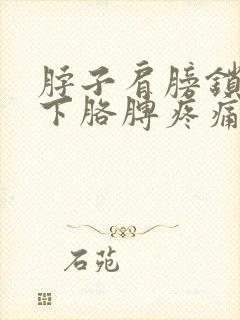 脖子肩膀鎖
下胳膊疼痛
石苑